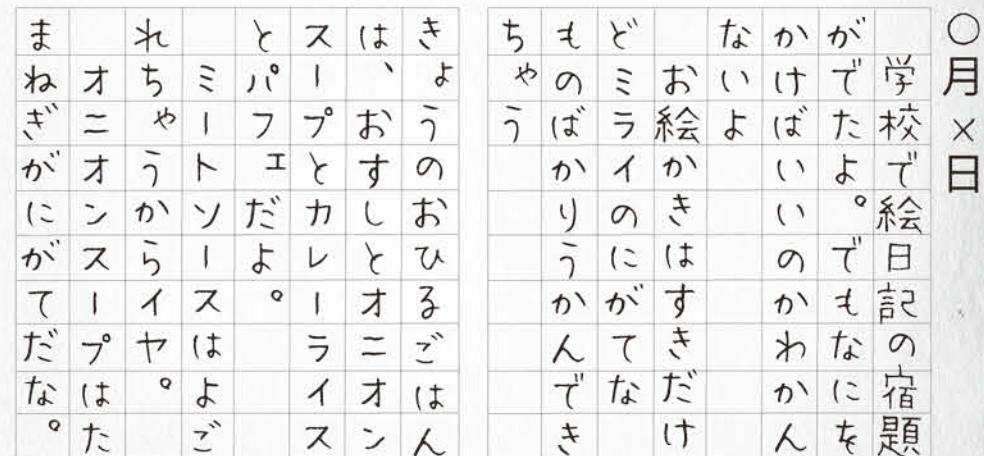 ○月×日
学校で絵日記の宿題
がでたよ。でもなにを
かけばいいのかわかん
ないよ
お絵かきはすきだけ
どミライのにがてな
ものばかりうかんでき
ちゃう
きょうのおひるごはん
は、おすしとオニオン
スープとカレーライス
とパフェだよ。
ミートソースはよご
れちゃうからイヤ。
オニオンスープはた
まねぎがにがてだな。